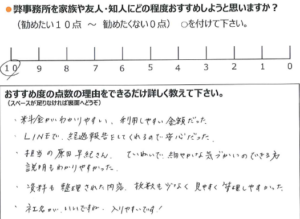 ● 弊事務所を家族や友人・知人にどの程度おすすめしようと思いますか?
(勧めたい10点 ～ 勧めたくない0点) ○を付けて下さい。
10 9 8 7 6 5 4 3 2 1 0
おすすめ度の点数の理由をできるだけ詳しく教えて下さい。
(スペースが足りなければ裏面へどうぞ)
・料金がわかりやすい、利用しやすい金額だった。
・LINEで、経過報告をしてくれるので安心だった。
・担当の原田早紀さん、ていねいで、細やかな気づかいのできる方
説明もわかりやすかった。
・資料も整理された内容、枚数も少なく見やすく管理しやすかった。
・社名がいいですね、入りやすいです!